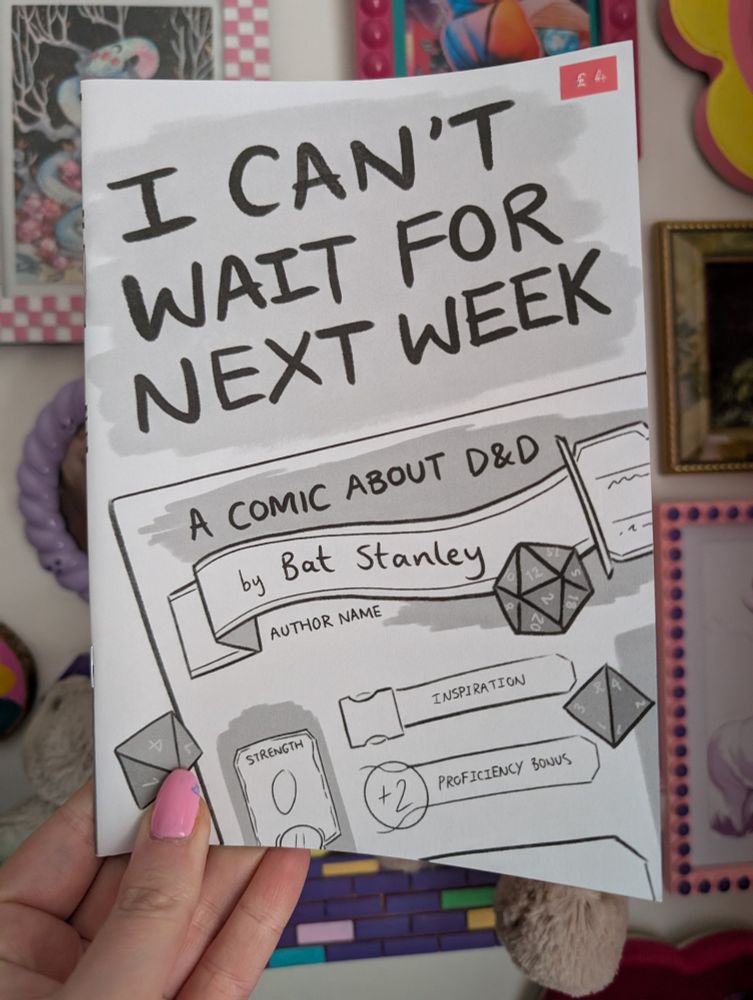 £4
I CAN'T
WAIT FOR
NEXT WEEK
A COMIC ABOUT D&D
by Bat Stanley
AUTHOR NAME
INSPIRATION
STRENGTH
0
+2 PROFICIENCY BONUS
12
2
20
18
5